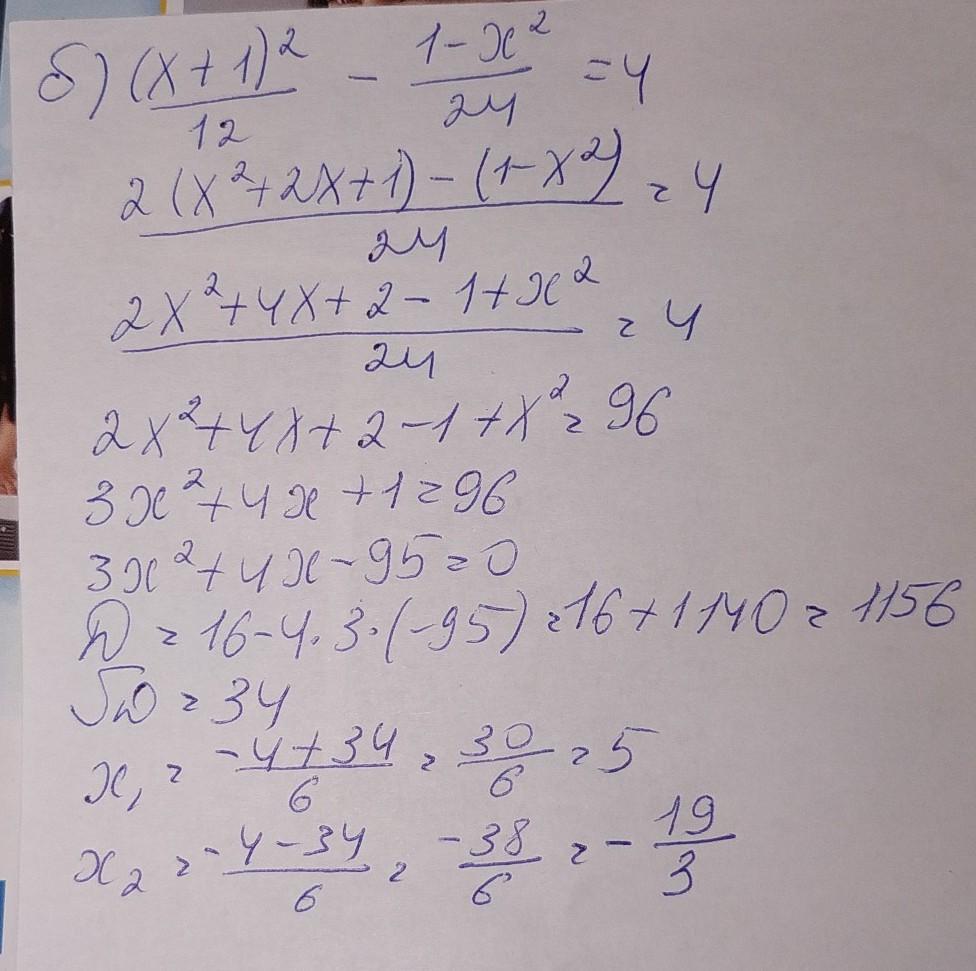 б) (x+1)²/12 - 1-x²/24 = 4
2(x²+2x+1)-(1-x²)/24 = 4
2x²+4x+2-1+x²/24 = 4
2x²+4x+2-1+x² = 96
3x²+4x+1 = 96
3x²+4x-95 = 0
D = 16-4·3·(-95) = 16+1140 = 1156
√D = 34
x₁ = -4+34/6 = 30/6 = 5
x₂ = -4-34/6 = -38/6 = -19/3